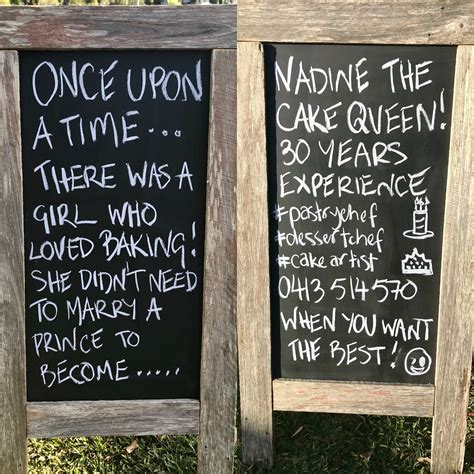 ONCE UPON
A TIME...
THERE WAS A
GIRL WHO
LOVED BAKING!
SHE DIDN'T NEED
TO MARRY A
PRINCE TO
BECOME.....
NADINE THE
CAKE QUEEN!
30 YEARS
EXPERIENCE
#pastrychef
#dessertchef
#cakeartist
0413 514 570
WHEN YOU WANT
THE BEST!